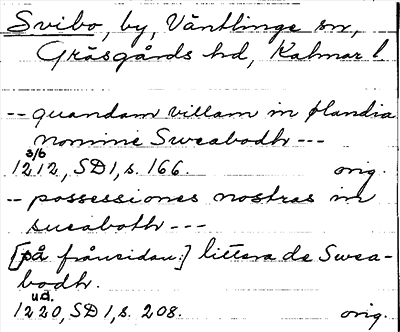 Svibo, by, Väntlinge sn,
Gräsgårds hd, Kalmar l
-- quandam villam in ølandia
nomine Sweabodh ---
3/6
1212, SD 1, s. 166. orig.
-- possessiones nostras in
sueaboth ---
[på frånsidan:] littera de Swea-
bodh.
u.d.
1220, SD 1, s. 208. orig.